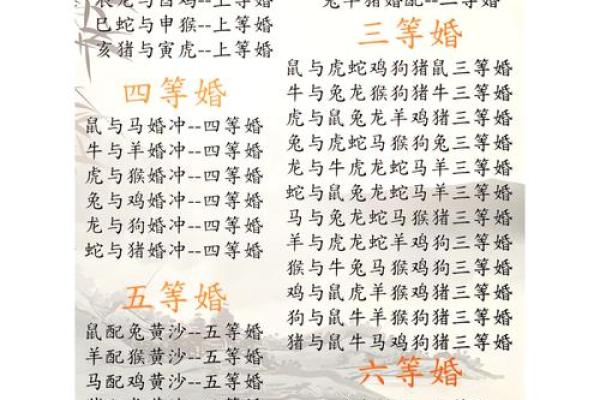 辰龙与酉鸡--上等婚
巳蛇与申猴--上等婚
亥猪与寅虎--上等婚
四等婚
鼠与马婚冲--四等婚
牛与羊婚冲--四等婚
虎与猴婚冲--四等婚
兔与鸡婚冲--四等婚
龙与狗婚冲--四等婚
蛇与猪婚冲--四等婚
五等婚
鼠配兔黄沙--五等婚
羊配猴黄沙--五等婚
马配鸡黄沙--五等婚
兔羊猪婚配--二等婚
三等婚
鼠与虎蛇鸡狗猪鼠三等婚
牛与兔龙猴狗猪牛三等婚
虎与鼠兔龙羊鸡猪三等婚
兔与虎蛇马猴狗兔三等婚
龙与牛虎龙蛇马羊三等婚
蛇与鼠兔龙蛇马羊三等婚
马与兔龙蛇马猴猪三等婚
羊与虎龙蛇羊鸡狗三等婚
猴与牛兔马猴鸡狗三等婚
鸡与鼠虎羊猴鸡狗三等婚
狗与鼠牛羊猴狗猪三等婚
猪与鼠牛马猴鸡狗三等婚
六等婚